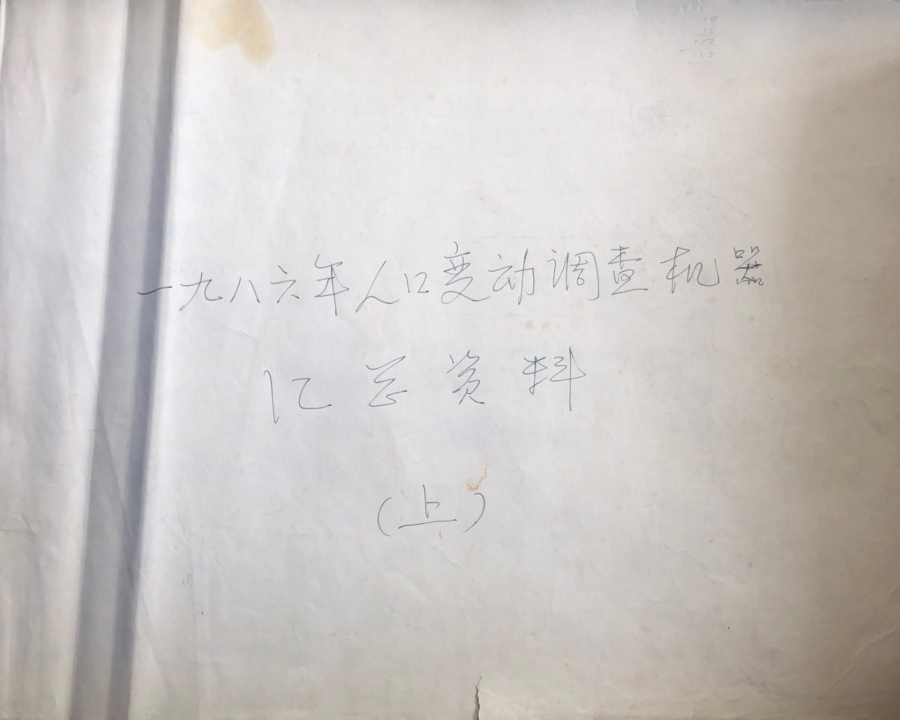 一九八六年人口变动调查机器
汇总资料
(上)